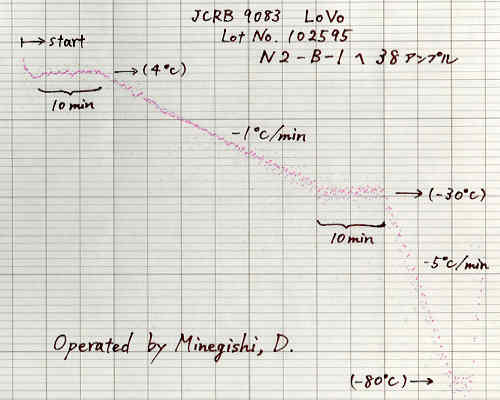 JCRB 9083 LoVo
Lot No. 102595
N2-B-1 へ 38 アンプル
start
(4°C)
10 min
-1°C/min
(-30°C)
10 min
-5°C/min
Operated by Minegishi, D.
(-80°C)